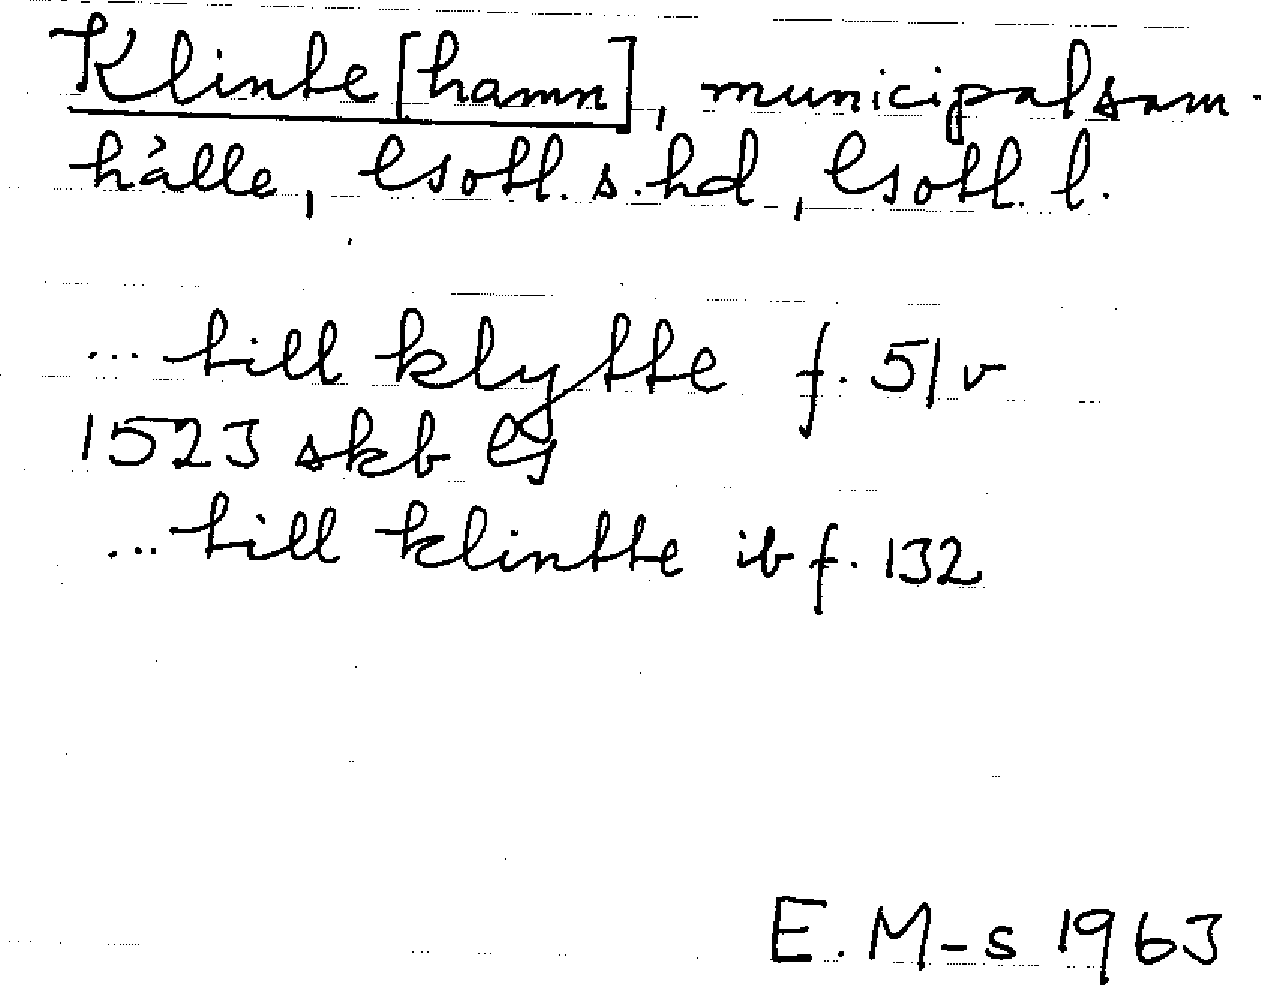 Klinte[hamn], municipalsam-
hälle, Gotl. s. hd, Gotl. l.
... till klytte f. 51 v
1523 skb G
... till klintte ib f. 132
E. M-s 1963